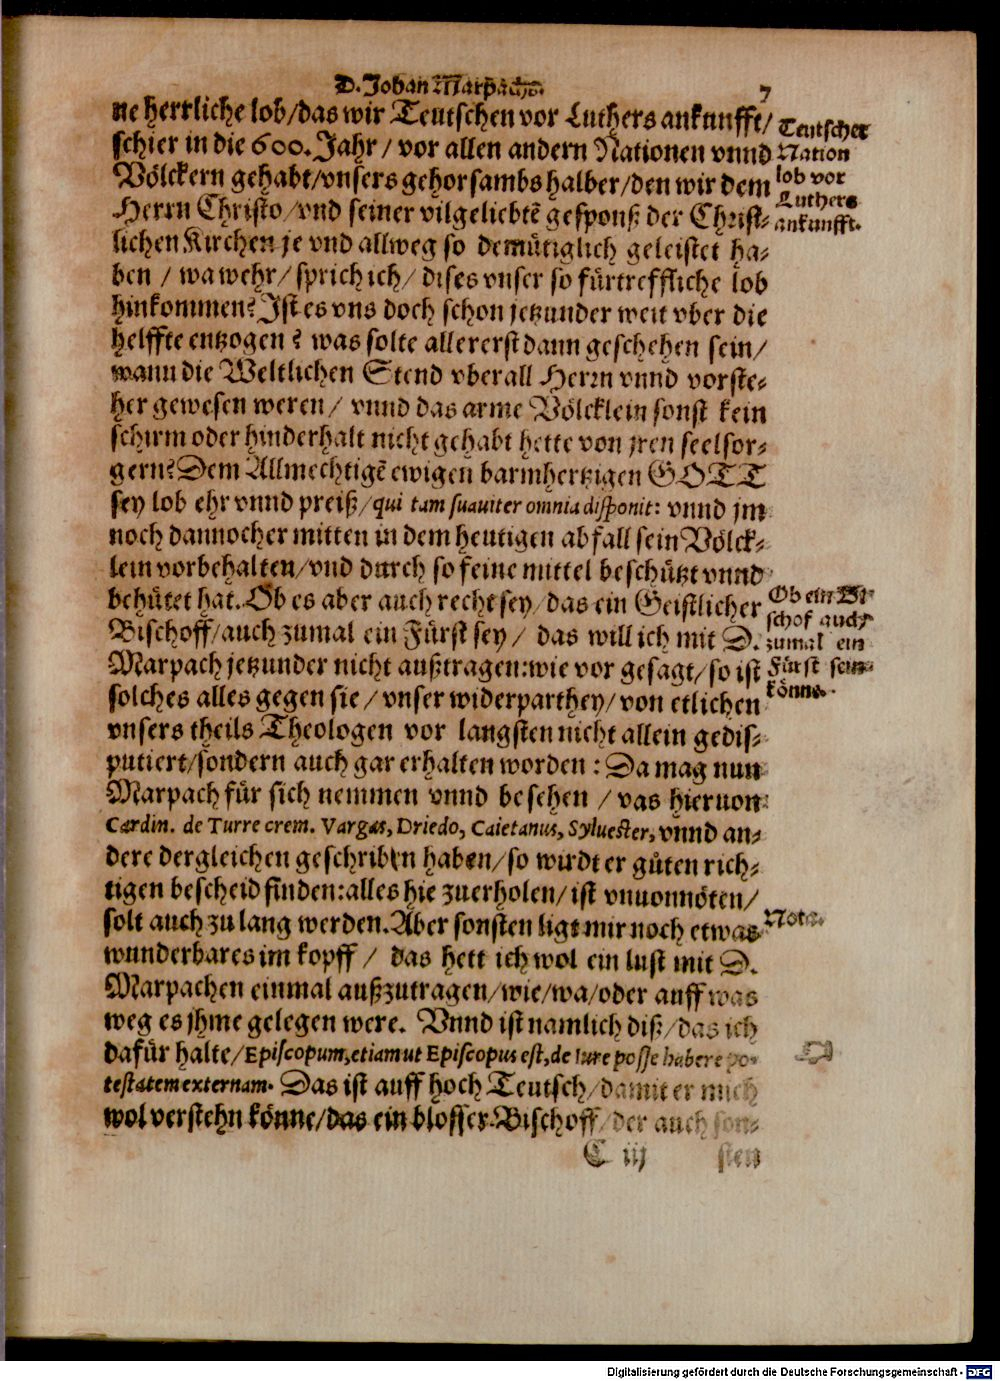 D. Johan Marpachs. 7
ne herrliche lob/das wir Teutschen vor Luthers ankunfft/
schier in die 600. Jahr/ vor allen andern Nationen vnnd
Völckern gehabt/vnsers gehorsambs halber/den wir dem
Herrn Christo/vnd seiner vilgeliebtẽ gesponß der Christ-
lichen Kirchen je vnd allweg so demütiglich geleistet ha-
ben / wa wehr/ sprich ich/ dises vnser so fürtreffliche lob
hinkommen? Ist es vns doch schon jetzunder weit vber die
helffte entzogen? was solte allererst dann geschehen sein/
wann die Weltlichen Stend vberall Herrn vnnd vorste-
her gewesen weren/ vnnd das arme Völcklein sonst kein
schirm oder hinderhalt nicht gehabt hette von jren seelsor-
gern? Dem Allmechtigẽ ewigen barmhertzigen GOTT
sey lob ehr vnnd preiß/qui tam suauiter omnia disponit: vnnd jm
noch dannocher mitten in dem heutigen abfall sein Völck-
lein vorbehalten/vnd durch so feine mittel beschützt vnnd
behütet hat. Ob es aber auch recht sey/das ein Geistlicher
Bischoff/auch zumal ein Fürst sey/ das will ich mit D.
Marpach jetzunder nicht außtragen:wie vor gesagt/so ist
solches alles gegen sie/vnser widerparthey/von etlichen
vnsers theils Theologen vor langsten nicht allein gedis-
putiert/sondern auch gar erhalten worden: Da mag nun
Marpach für sich nemmen vnnd besehen/was hieruon
Cardin. de Turre crem. Vargas, Driedo, Caietanus, Syluester, vnnd an-
dere dergleichen geschriben haben/so wirdt er gůten rich-
tigen bescheid finden:alles hie zuerholen/ist vnuonnöten/
solt auch zu lang werden. Aber sonsten ligt mir noch etwas
wunderbares im kopff/ das hett ich wol ein lust mit D.
Marpachen einmal außzutragen/wie/wa/oder auff was
weg es jhme gelegen were. Vnnd ist namlich diß/das ich
dafür halte/Episcopum, etiam ut Episcopus est, de Iure posse habere po-
testatem externam. Das ist auff hoch Teutsch/damit er mich
wol verstehn könne/das ein blosser Bischoff/der auch son-
C iij sten
Teutscher
Nation
lob vor
Luthers
ankunfft.
Ob ein Bi-
schof auch
zumal ein
Fürst sein
könne.
Nota.
Digitalisierung gefördert durch die Deutsche Forschungsgemeinschaft - DFG